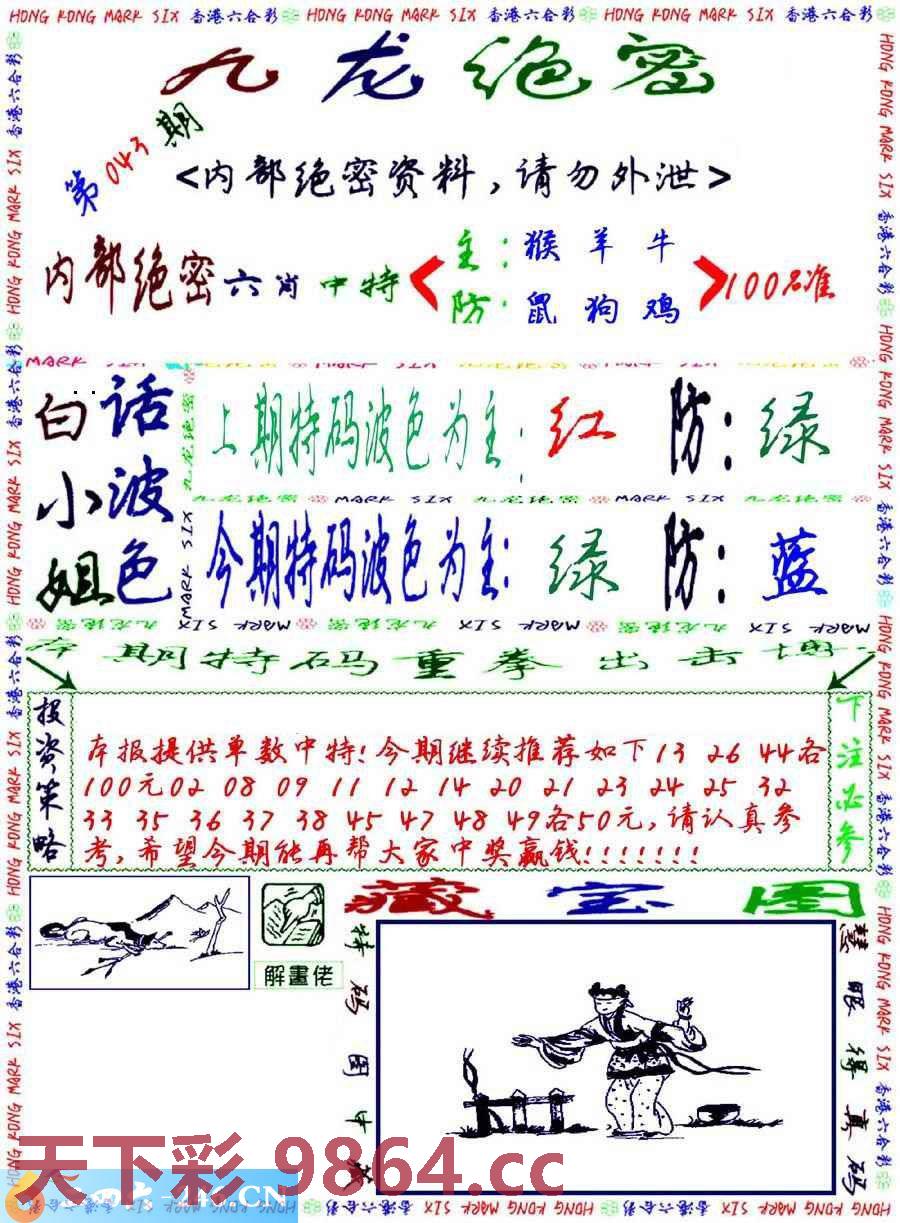 HONG KONG MARK SIX 香港六合彩 HONG KONG MARK SIX 香港六合彩 HONG KONG MARK SIX 香港六合彩
九龙绝密
第043期
<内部绝密资料,请勿外泄>
内部绝密六肖中特
主:猴羊牛
防:鼠狗鸡
100%准
白小姐
话波色
上期特码波色为主:红 防:绿
九龙绝密 MARK SIX 九龙绝密 MARK SIX 九龙绝密
今期特码波色为主:绿 防:蓝
期特码重拳出击
投资策略
本报提供单数中特!今期继续推荐如下13 26 44各
100元02 08 09 11 12 14 20 21 23 24 25 32
33 35 36 37 38 45 47 48 49各50元,请认真参
考,希望今期能再帮大家中奖赢钱!!!!!!!
下注必参
解畫佬
藏宝图
特码图中藏
慧眼得真码
天下彩.9864.cc